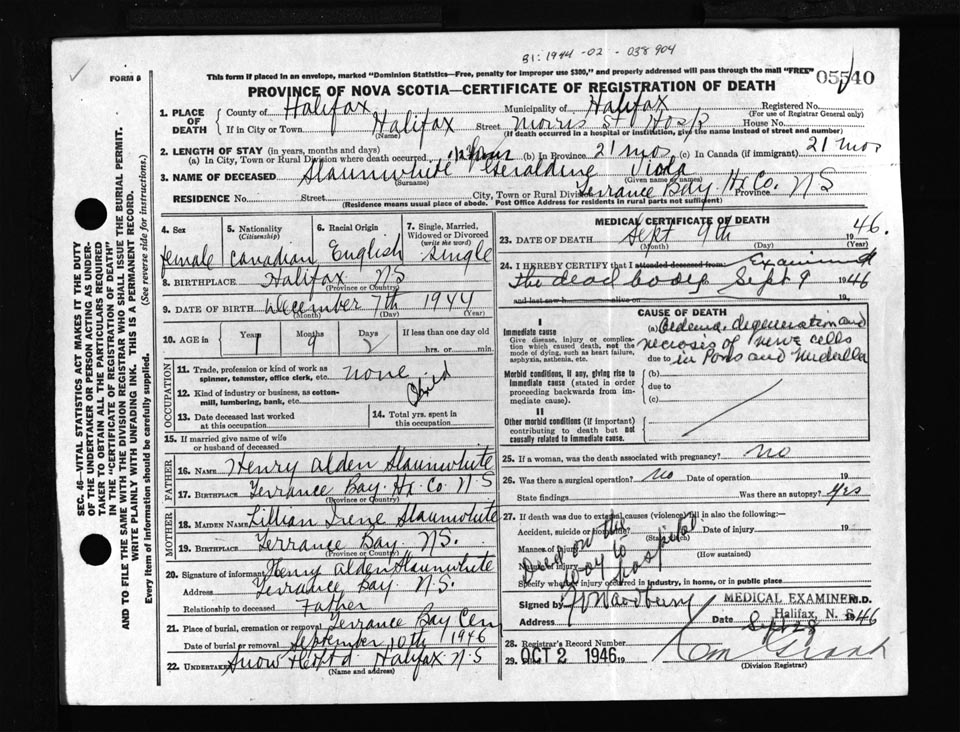 B1: 1944 - 02 - 038904
FORM B
This form if placed in an envelope, marked "Dominion Statistics—Free, penalty for improper use $300," and properly addressed will pass through the mail "FREE"
05540
PROVINCE OF NOVA SCOTIA—CERTIFICATE OF REGISTRATION OF DEATH
SEC. 46—VITAL STATISTICS ACT MAKES IT THE DUTY OF THE UNDERTAKER OR PERSON ACTING AS UNDERTAKER TO OBTAIN ALL THE PARTICULARS REQUIRED IN THE "CERTIFICATE OF REGISTRATION OF DEATH" AND TO FILE THE SAME WITH THE DIVISION REGISTRAR WHO SHALL ISSUE THE BURIAL PERMIT.
WRITE PLAINLY WITH UNFADING INK. THIS IS A PERMANENT RECORD.
Every item of information should be carefully supplied. (See reverse side for instructions.)
1. PLACE OF DEATH
County of Halifax Municipality of Halifax Registered No.
(For use of Registrar General only)
If in City or Town Halifax Street Morris St Hosp House No.
(Name) (If death occurred in a hospital or institution, give the name instead of street and number)
2. LENGTH OF STAY (in years, months and days)
(a) In City, Town or Rural Division where death occurred (b) In Province 21 mos (c) In Canada (if immigrant) 21 mos
3. NAME OF DECEASED Slaunwhite Geraldine Viola
(Surname) (Given name or names)
RESIDENCE No. Street City, Town or Rural Division Terrance Bay Hx Co. Province NS
(Residence means usual place of abode. Post Office Address for residents in rural parts not sufficient)
4. Sex 5. Nationality (Citizenship) 6. Racial Origin 7. Single, Married, Widowed or Divorced (write the word)
female Canadian English Single
8. BIRTHPLACE Halifax NS
(Province or Country)
9. DATE OF BIRTH December 7th 1944
(Month) (Day) (Year)
10. AGE in Years Months Days If less than one day
1 9 2 hrs. or min.
OCCUPATION
11. Trade, profession or kind of work as spinner, teamster, office clerk, etc. none
12. Kind of industry or business, as cotton-mill, lumbering, bank, etc. Child
13. Date deceased last worked at this occupation
14. Total yrs. spent in this occupation
15. If married give name of wife or husband of deceased
FATHER
16. NAME Henry Alden Slaunwhite
17. BIRTHPLACE Terrance Bay. Hx. Co. N.S
(Province or Country)
MOTHER
18. MAIDEN NAME Lillian Irene Slaunwhite
19. BIRTHPLACE Terrance Bay. NS.
(Province or Country)
20. Signature of informant Henry Alden Slaunwhite
Address Terrance Bay. N.S.
Relationship to deceased Father
21. Place of burial, cremation or removal Terrance Bay Cem
Date of burial or removal September 10th 1946
22. UNDERTAKER Snow & Co Ltd Halifax N.S
(Name and address)
MEDICAL CERTIFICATE OF DEATH
23. DATE OF DEATH Sept 9th 1946.
(Month) (Day) (Year)
24. I HEREBY CERTIFY that I attended deceased from: Examined
The dead body Sept 9 1946
and last saw h alive on 19
CAUSE OF DEATH
I
Immediate cause
Give disease, injury or complication which caused death, not the mode of dying, such as heart failure, asphyxia, asthenia, etc.
(a) Oedema, degeneration and
necroses of nerve cells
due to in Pons and Medulla
Morbid conditions, if any, giving rise to immediate cause (stated in order proceeding backwards from immediate cause).
(b)
due to
(c)
II
Other morbid conditions (if important) contributing to death but not causally related to immediate cause.
25. If a woman, was the death associated with pregnancy? no
26. Was there a surgical operation? no Date of operation 19
State findings Was there an autopsy? Yes
27. If death was due to external causes (violence) fill in also the following:
Accident, suicide or homicide? Date of injury 19
(State which)
Manner of injury
(How sustained)
Nature of injury
Specify whether injury occurred in industry, in home, or in public place
Died on the
way to
hospital
Signed by M.D.
MEDICAL EXAMINER
Halifax, N. S.
Address Date 1946
28. Registrar's Record Number
29. OCT 2 1946 19
(Division Registrar)